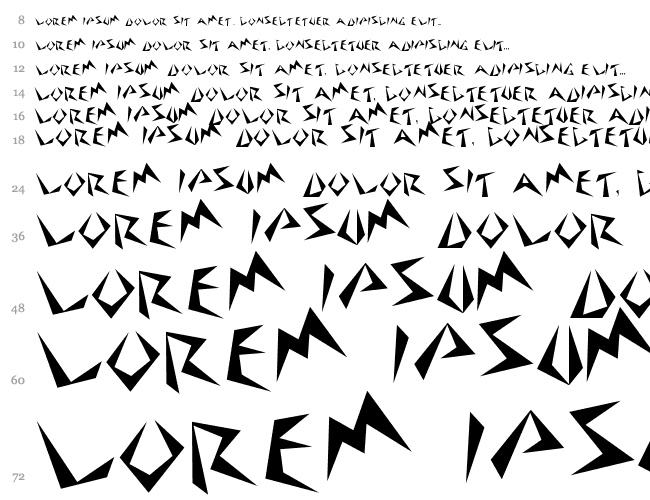 8 LOREM IPSUM DOLOR SIT AMET, CONSECTETUER ADIPISCING ELIT...
10 LOREM IPSUM DOLOR SIT AMET, CONSECTETUER ADIPISCING ELIT...
12 LOREM IPSUM DOLOR SIT AMET, CONSECTETUER ADIPISCING ELIT...
14 LOREM IPSUM DOLOR SIT AMET, CONSECTETUER ADIPISCIN
16 LOREM IPSUM DOLOR SIT AMET, CONSECTETUER ADI
18 LOREM IPSUM DOLOR SIT AMET, CONSECTETU
24 LOREM IPSUM DOLOR SIT AMET, C
36 LOREM IPSUM DOLOR
48 LOREM IPSUM DO
60 LOREM IPSUM
72 LOREM IPS